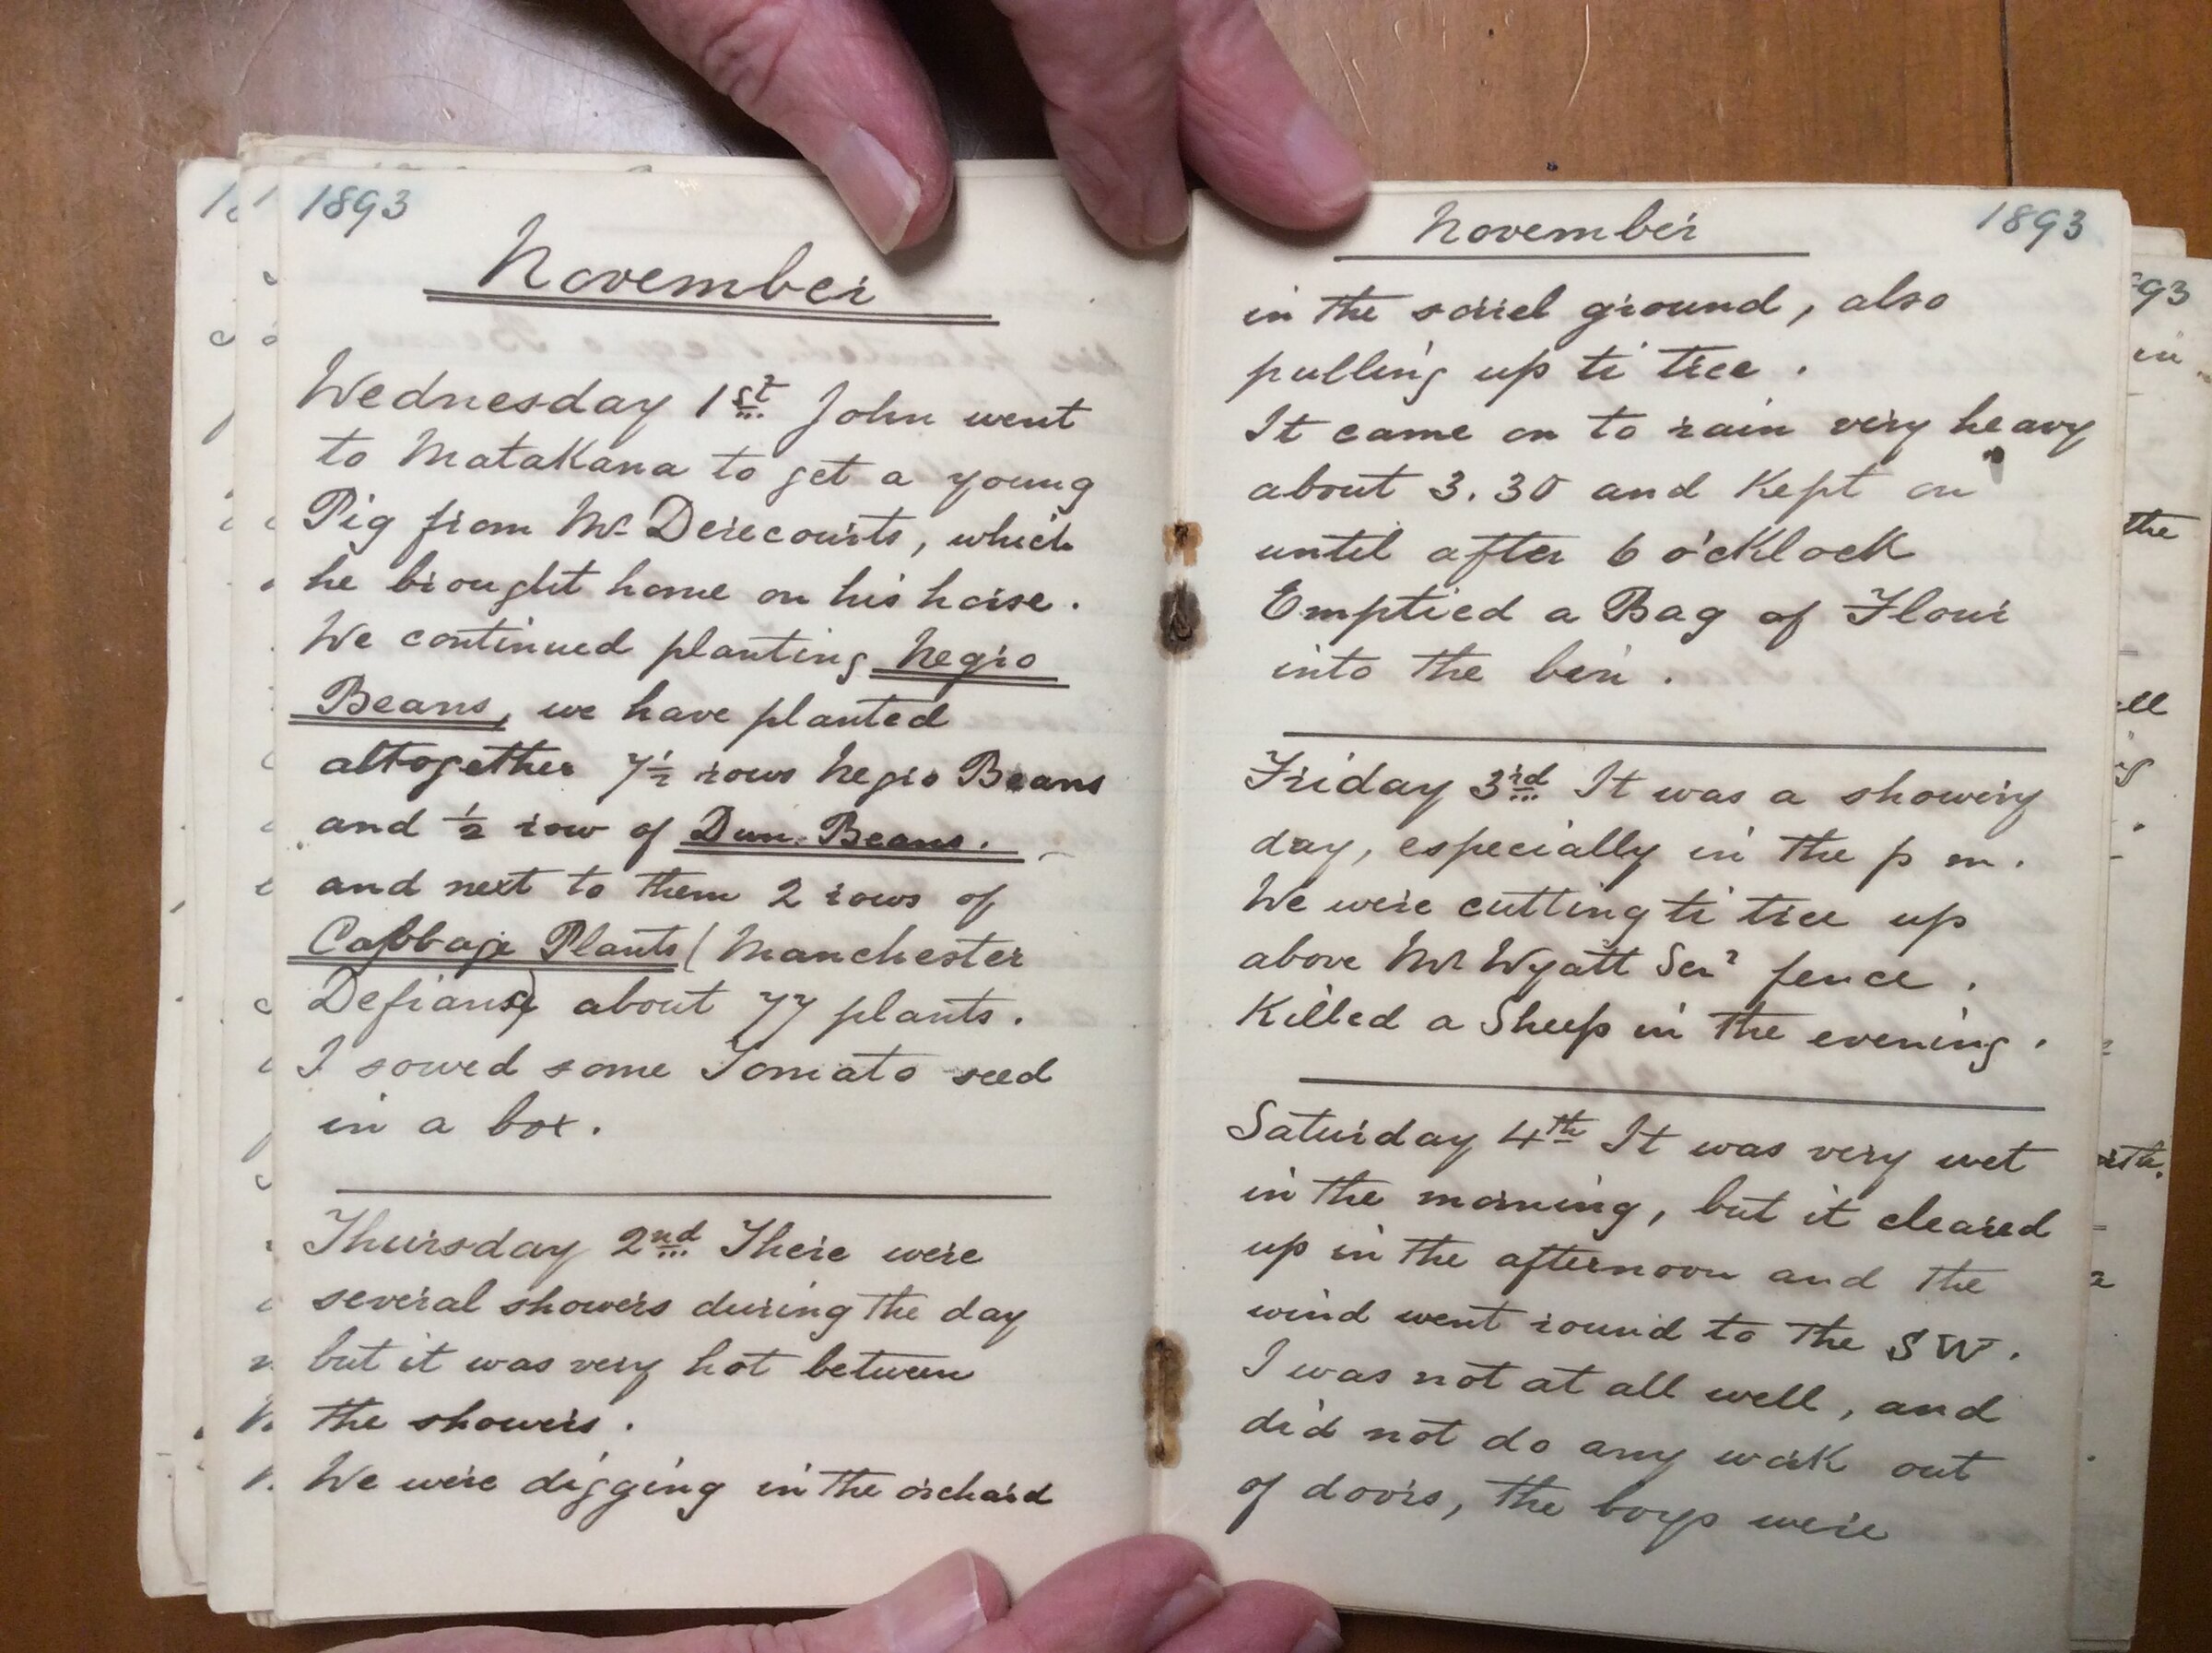 1893
November
Wednesday 1st John went
to Matakana to get a young
Pig from Mr Derecourts, which
he brought home on his horse.
We continued planting Negro
Beans, we have planted
altogether 7½ rows Negro Beans
and ½ row of Dun Beans.
and next to them 2 rows of
Cabbage Plants (Manchester
Defianse) about 77 plants.
I sowed some Tomato seed
in a box.
Thursday 2nd There were
several showers during the day
but it was very hot between
the showers.
We were digging in the orchard
November 1893
in the sorrel ground, also
pulling up ti tree.
It came on to rain very heavy
about 3.30 and Kept on
until after 6 o'cKlocK
Emptied a Bag of Flour
into the bin.
Friday 3rd It was a showery
day, especially in the p m.
We were cutting ti tree up
above Mr Wyatt Senr fence.
Killed a Sheep in the evening.
Saturday 4th It was very wet
in the morning, but it cleared
up in the afternoon and the
wind went round to the SW.
I was not at all well, and
did not do any work out
of doors, the boys were